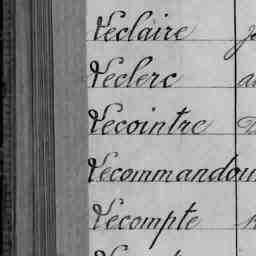 Leclaire
Leclerc
Lecointre
Lecommandou
Lecompte